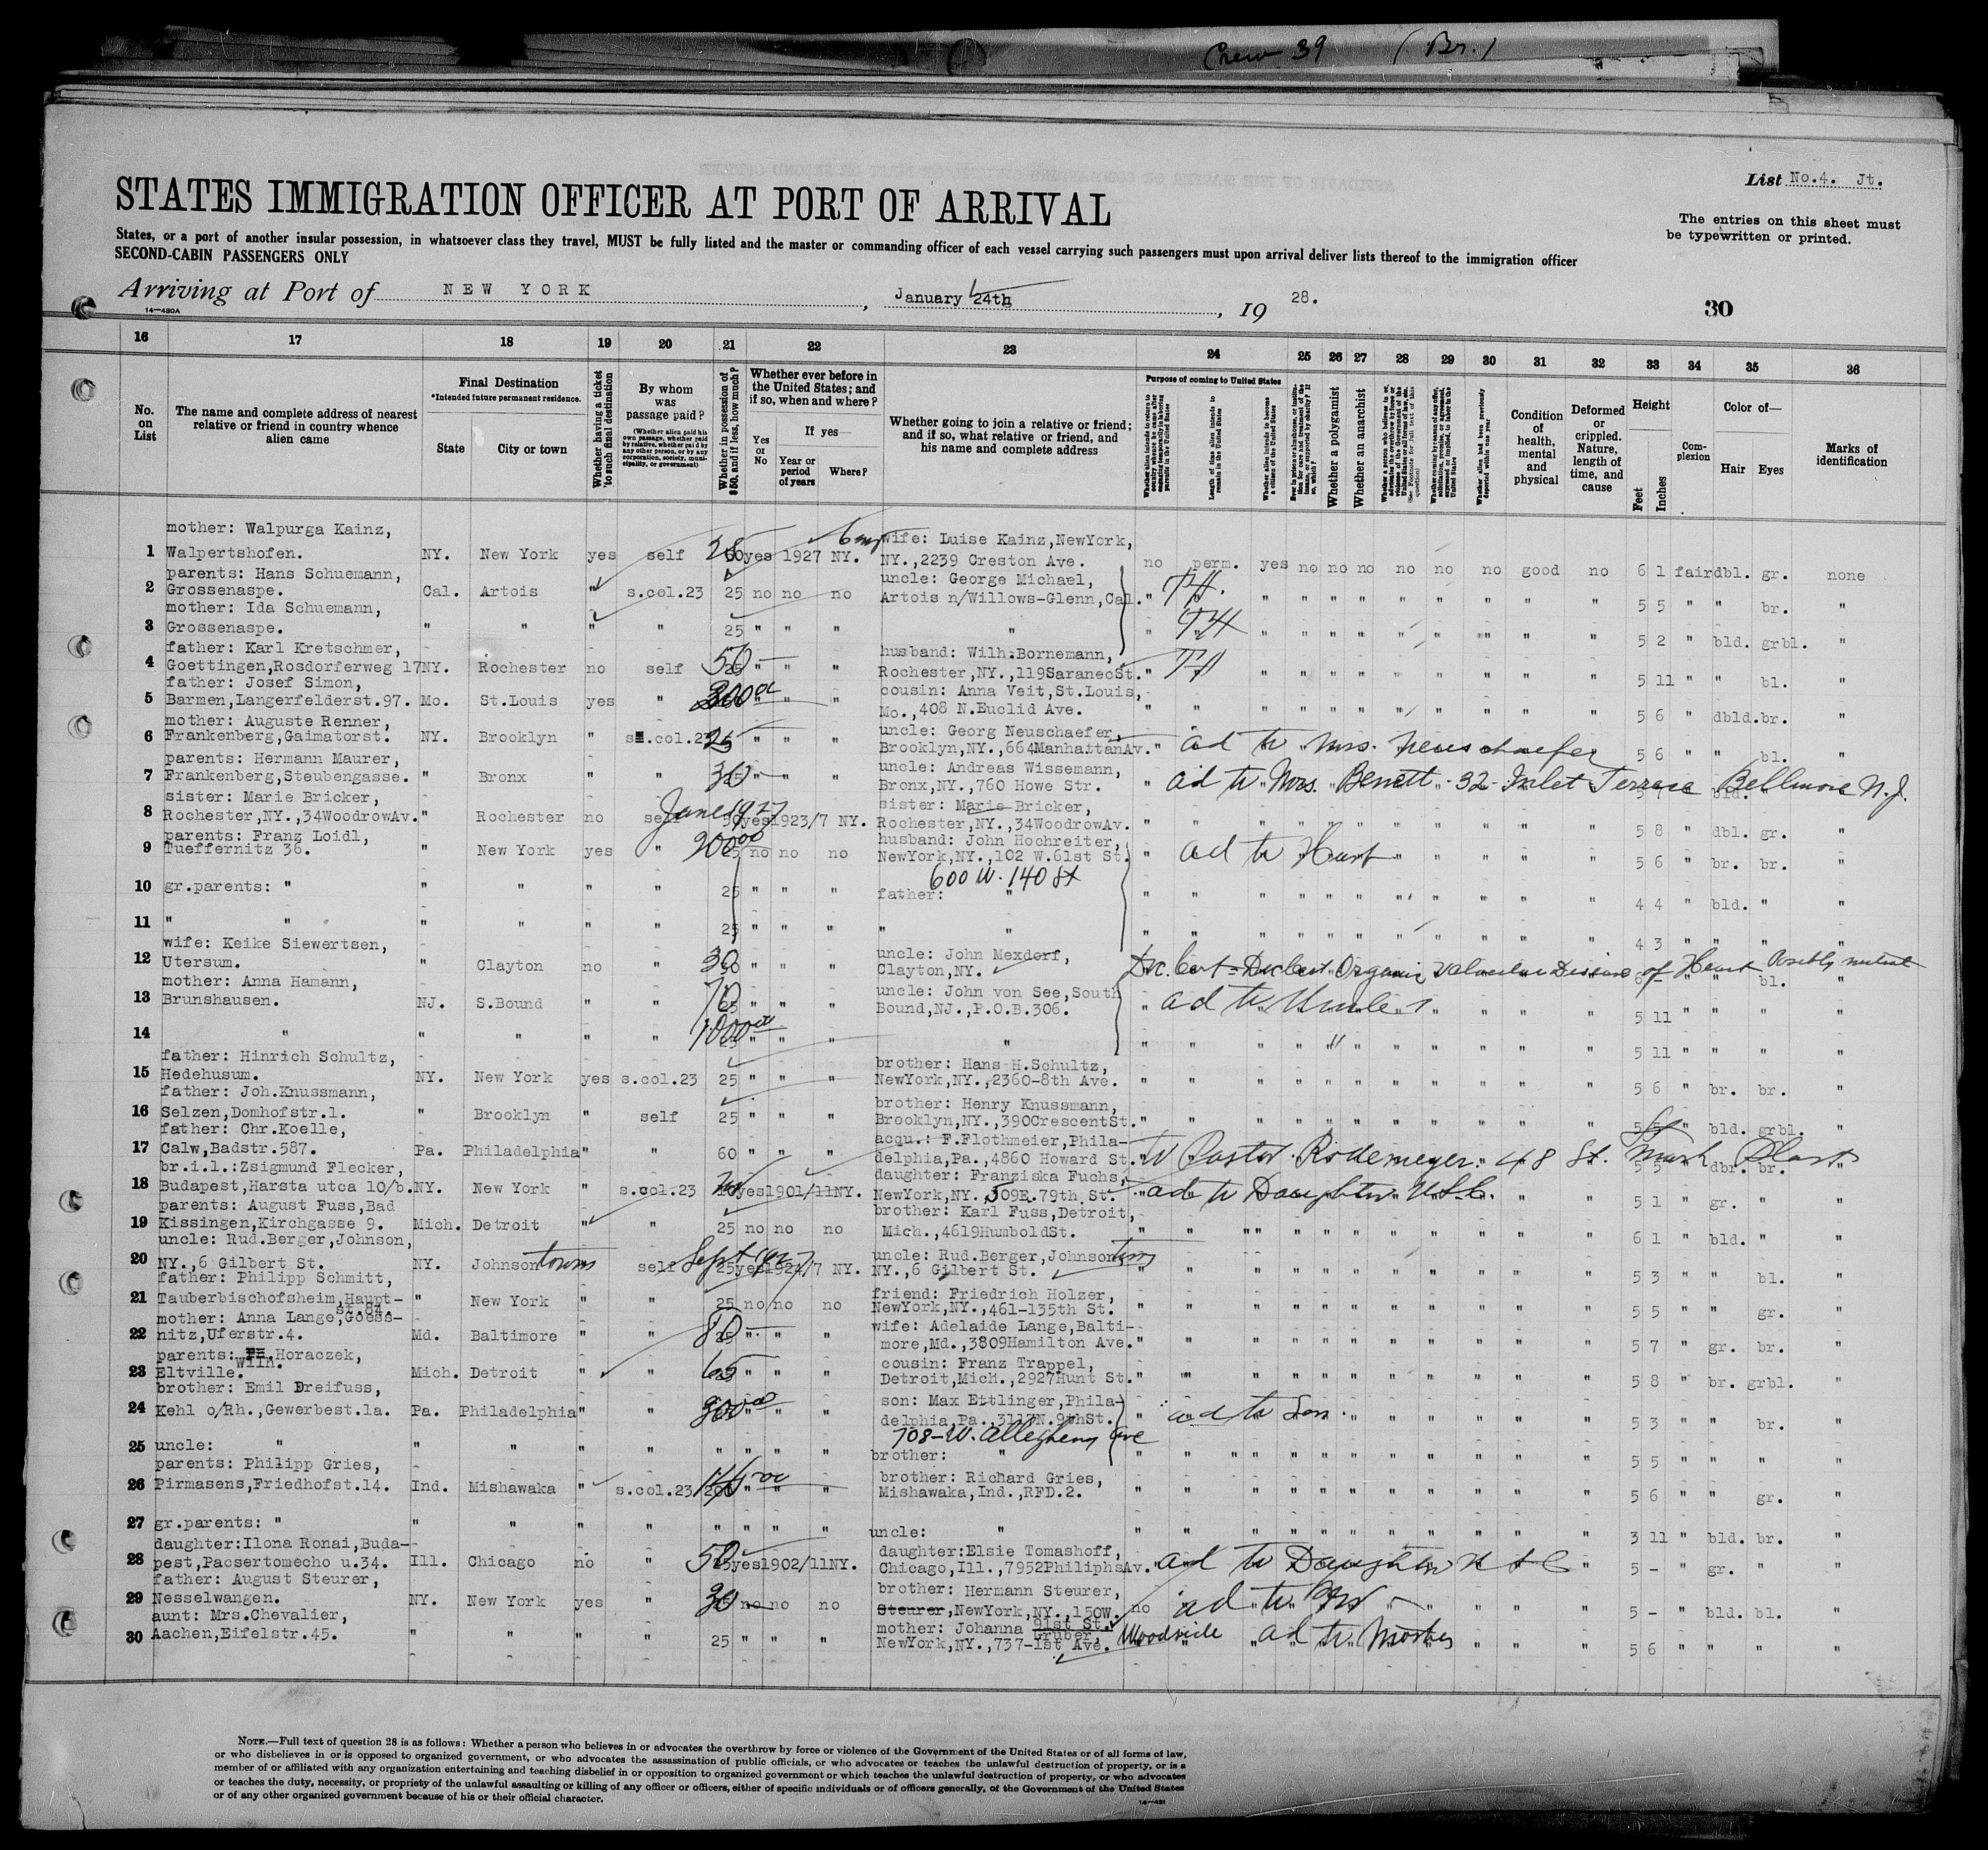 Crew 39 (Br.)
List No.4. Jt.
STATES IMMIGRATION OFFICER AT PORT OF ARRIVAL
The entries on this sheet must
be typewritten or printed.
States, or a port of another insular possession, in whatsoever class they travel, MUST be fully listed and the master or commanding officer of each vessel carrying such passengers must upon arrival deliver lists thereof to the immigration officer
SECOND-CABIN PASSENGERS ONLY
Arriving at Port of NEW YORK, January 24th, 19 28.
30
14—480A
16 17 18 19 20 21 22 23 24 25 26 27 28 29 30 31 32 33 34 35 36
No. on List
The name and complete address of nearest relative or friend in country whence alien came
Final Destination
*Intended future permanent residence.
State City or town
Whether having a ticket to such final destination
By whom was passage paid?
(Whether alien paid his own passage, whether paid by relative, whether paid by any other person, or by any corporation, society, municipality, or government)
Whether in possession of $50, and if less, how much?
Whether ever before in the United States; and if so, when and where?
Yes or No
If yes—
Year or period of years
Where?
Whether going to join a relative or friend; and if so, what relative or friend, and his name and complete address
Purpose of coming to United States
Length of time alien intends to remain in the United States
Whether alien intends to become a citizen of the United States
Whether a polygamist
Whether an anarchist
Whether alien had been previously deported within one year
Condition of health, mental and physical
Deformed or crippled. Nature, length of time, and cause
Height
Feet Inches
Complexion
Color of—
Hair Eyes
Marks of identification
mother: Walpurga Kainz, wife: Luise Kainz,NewYork,
1 Walpertshofen. NY. New York yes self 25 yes 1927 NY. NY.,2239 Creston Ave. no perm. yes no no no no no no good no 6 1 fair dbl. gr. none
parents: Hans Schuemann, uncle: George Michael,
2 Grossenaspe. Cal. Artois " s.col.23 25 no no no Artois n/Willows-Glenn,Cal. " " " " " " " " " " 5 5 " " br. "
mother: Ida Schuemann,
3 Grossenaspe. " " " " 25 " " " " " " " " " " " " " " 5 2 " bld. grbl. "
father: Karl Kretschmer, husband: Wilh.Bornemann,
4 Goettingen,Rosdorferweg 17 NY. Rochester no self 50 " " " Rochester,NY.,119SaranecSt. " " " " " " " " " " 5 11 " " bl. "
father: Josef Simon, cousin: Anna Veit,St.Louis,
5 Barmen,Langerfelderst.97. Mo. St.Louis yes " 300 " " " Mo.,408 N.Euclid Ave. " " " " " " " " " " " 5 6 " dbld. br. "
mother: Auguste Renner, uncle: Georg Neuschaefer,
6 Frankenberg,Gaimatorst. NY. Brooklyn " s.col.23 25 " " " Brooklyn,NY.,664ManhattanAv. " ad to Mrs. Neuschaefer 5 6 " " bl. "
parents: Hermann Maurer, uncle: Andreas Wissemann,
7 Frankenberg,Steubengasse. " Bronx " " 30 " " " Bronx,NY.,760 Howe Str. " ad to Mrs. Benett - 32 - Inlet Terrace Bellmore N.J.
sister: Marie Bricker, June 1927 sister: Marie Bricker,
8 Rochester,NY.,34WoodrowAv. " Rochester no self yes 1923/7 NY. Rochester,NY.,34WoodrowAv. " " " " " " " " " " " 5 8 " dbl. gr. "
parents: Franz Loidl, husband: John Hochreiter,
9 Tueffernitz 36. " New York yes " 200 no no no NewYork,NY.,102 W.61st St. " ad to Husb " " " " " 5 6 " br. br. "
600 W. 140 St
10 gr.parents: " " " " " 25 " " " father: " " " " " " " " " " " " 4 4 " bld. " "
11 " " " " " " 25 " " " " " " " " " " " " " " " " 4 3 " " " "
wife: Keike Siewertsen, uncle: John Mexdorf,
12 Utersum. " Clayton no " 30 " " " Clayton,NY. Organic Valvular Disease of Heart 6 - " " bl. "
mother: Anna Hamann, uncle: John von See,South
13 Brunshausen. NJ. S.Bound " " 70 " " " Bound,NJ.,P.O.B.306. " ad to Uncle " " " " " 5 11 " " " "
14 " " " " " 1000 " " " " " " " " " " " " " " " 5 11 " " " "
father: Hinrich Schultz, brother: Hans H.Schultz,
15 Hedehusum. NY. New York yes s.col.23 25 " " " NewYork,NY.,2360-8th Ave. " " " " " " " " " " " 5 6 " br. br. "
father: Joh.Knussmann, brother: Henry Knussmann,
16 Selzen,Domhofstr.1. " Brooklyn " self 25 " " " Brooklyn,NY.,390CrescentSt. " " " " " " " " " " " " bld. grbl. "
father: Chr.Koelle, acqu.: F.Flothmeier,Phila-
17 Calw,Badstr.587. Pa. Philadelphia " " 60 " " " delphia,Pa.,4860 Howard St. to Pastor Rodemeyer 48 St. Mark Place 5 5 " dbr. br.
br.i.l.:Zsigmund Flecker, daughter: Franziska Fuchs,
18 Budapest,Harsta utca 10/b. NY. New York " s.col.23 yes 1901/11 NY. NewYork,NY.,509E.79th St. " ad to Daughter USC. " " " 5 1 " gr. " "
parents: August Fuss,Bad brother: Karl Fuss,Detroit,
19 Kissingen,Kirchgasse 9. Mich. Detroit " " 25 no no no Mich.,4619HumboldSt. " " " " " " " " " " " 6 1 " bld. " "
uncle: Rud.Berger,Johnson, Sept 1927 uncle: Rud.Berger,Johnsontown
20 NY.,6 Gilbert St. NY. Johnsontown self 25 yes NY. NY.,6 Gilbert St. " " " " " " " " " " " 5 3 " " bl. "
father: Philipp Schmitt, friend: Friedrich Holzer,
21 Tauberbischofsheim,Haupt- " New York " " 25 no no no NewYork,NY.,461-135th St. " " " " " " " " " " " 5 5 " " gr. "
st.84.
mother: Anna Lange,Goess- wife: Adelaide Lange,Balti-
22 nitz,Uferstr.4. Md. Baltimore " " 80 " " " more,Md.,3809Hamilton Ave. " " " " " " " " " " " 5 7 " gr. br. "
parents: Wilh. Horaczek, cousin: Franz Trappel,
23 Eltville. Mich. Detroit " " 65 " " " Detroit,Mich.,2927Hunt St. " " " " " " " " " " " 5 8 " br. grbl. "
brother: Emil Dreifuss, son: Max Ettlinger,Phila-
24 Kehl o/Rh.,Gewerbest.1a. Pa. Philadelphia " " " " " delphia,Pa.,3117N.9thSt. " ad to Son " " " " " 5 3 " " br. "
708-W. Allegheny Ave
25 uncle: " " " " " " " " " brother: " " " " " " " " " " " " 5 5 " " " "
parents: Philipp Gries, brother: Richard Gries,
26 Pirmasens,Friedhofst.14. Ind. Mishawaka " s.col.23 " " " Mishawaka,Ind.,RFD.2. " " " " " " " " " " " 5 6 " " gr. "
27 gr.parents: " " " " " " " " " uncle: " " " " " " " " " " " " 3 11 " bld. br. "
daughter:Ilona Ronai,Buda- daughter:Elsie Tomashoff,
28 pest,Pacsertomecho u.34. Ill. Chicago no " 50 yes 1902/11 NY. Chicago,Ill.,7952PhiliphsAv. ad to Daughter USC " 5 - " gr. " "
father: August Steurer, brother: Hermann Steurer,
29 Nesselwangen. NY. New York yes " 30 no no no Steurer,NewYork,NY.,150W. no ad to Bro " " " " 5 - " bld. bl. "
91st St.
aunt: Mrs.Chevalier, mother: Johanna Gruber,
30 Aachen,Eifelstr.45. " " " " 25 " " " NewYork,NY.,737-1st Ave. Woodside ad to Mother " " " 5 6 " " " "
NOTE.—Full text of question 28 is as follows: Whether a person who believes in or advocates the overthrow by force or violence of the Government of the United States or of all forms of law,
or who disbelieves in or is opposed to organized government, or who advocates the assassination of public officials, or who advocates or teaches the unlawful destruction of property, or is a
member of or affiliated with any organization entertaining and teaching disbelief in or opposition to organized government or which teaches the unlawful destruction of property, or who advocates
or teaches the duty, necessity, or propriety of the unlawful assaulting or killing of any officer or officers, either of specific individuals or of officers generally, of the Government of the United States
or of any other organized government because of his or their official character.
14—481